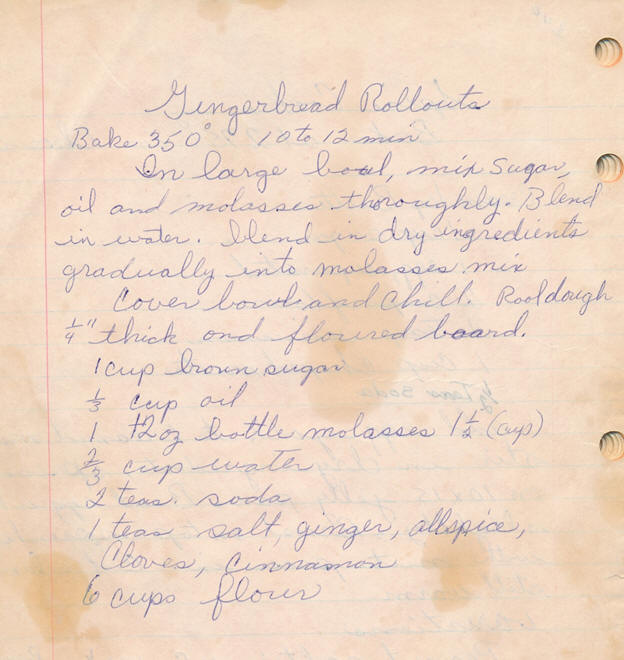 Gingerbread Rollouts
Bake 350° 10 to 12 min
In large bowl, mix Sugar,
oil and molasses thoroughly. Blend
in water. blend in dry ingredients
gradually into molasses mix
Cover bowl and Chill. Rool dough
1/4" thick ond floured board.
1 cup brown sugar
1/3 cup oil
1 12 oz bottle molasses 1 1/2 (cup)
2/3 cup water
2 teas. soda
1 teas salt, ginger, allspice,
Cloves, Cinnamon
6 cups flour